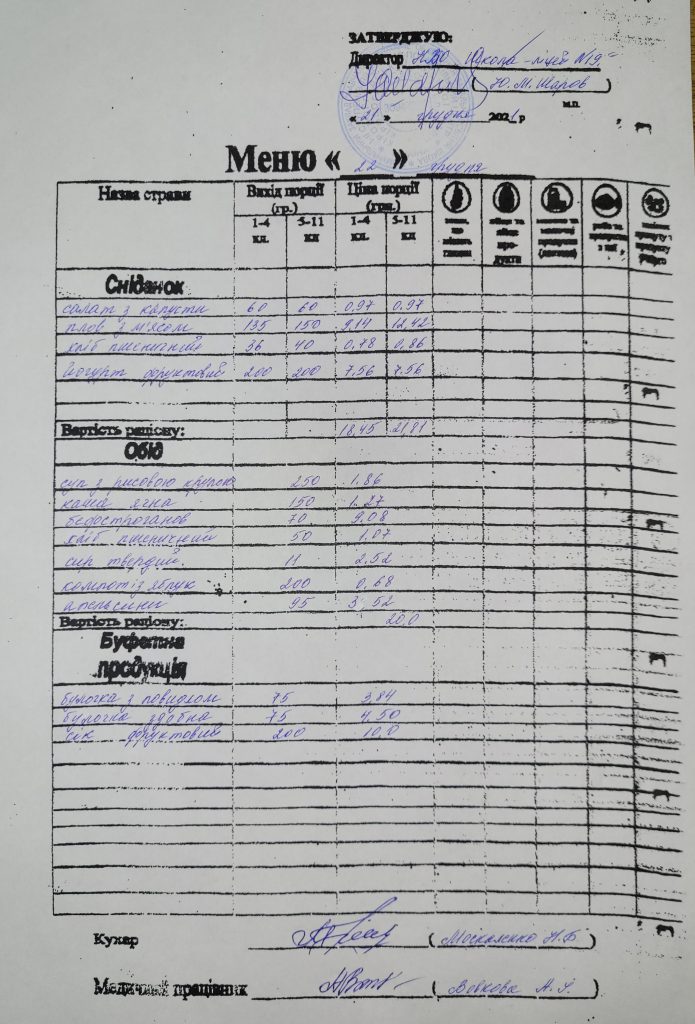 ЗАТВЕРДЖУЮ:
Директор НВО Школа-ліцей №19"
( Ю. М. Шаров )
м.п.
« 21 » грудня 2021 р
Меню « 22 » грудня
Назва страви Вихід порції (гр.) Ціна порції (грн.)
1-4 кл. 5-11 кл 1-4 кл. 5-11 кл
Сніданок
салат з капусти 60 60 0,97 0,97
плов з м'ясом 135 150 9,14 12,42
хліб пшеничний 36 40 0,78 0,86
йогурт фруктовий 200 200 7,56 7.56
Вартість раціону: 18,45 21,81
Обід
суп з рисовою крупою 250 1.86
каша ячна 150 1.27
бефостроганов 70 9,08
хліб пшеничний 50 1.07
сир твердий. 11 2.52
компот із яблук 200 0,68
апельсини 95 3,52
Вартість раціону: 20,0
Буфетна
продукція
булочка з повидлом 75 3,84
булочка здобна 75 4,50
сік фруктовий 200 10,0
Кухар ( Москаленко Н.Б )
Медичний працівник ( Вовкова А. )